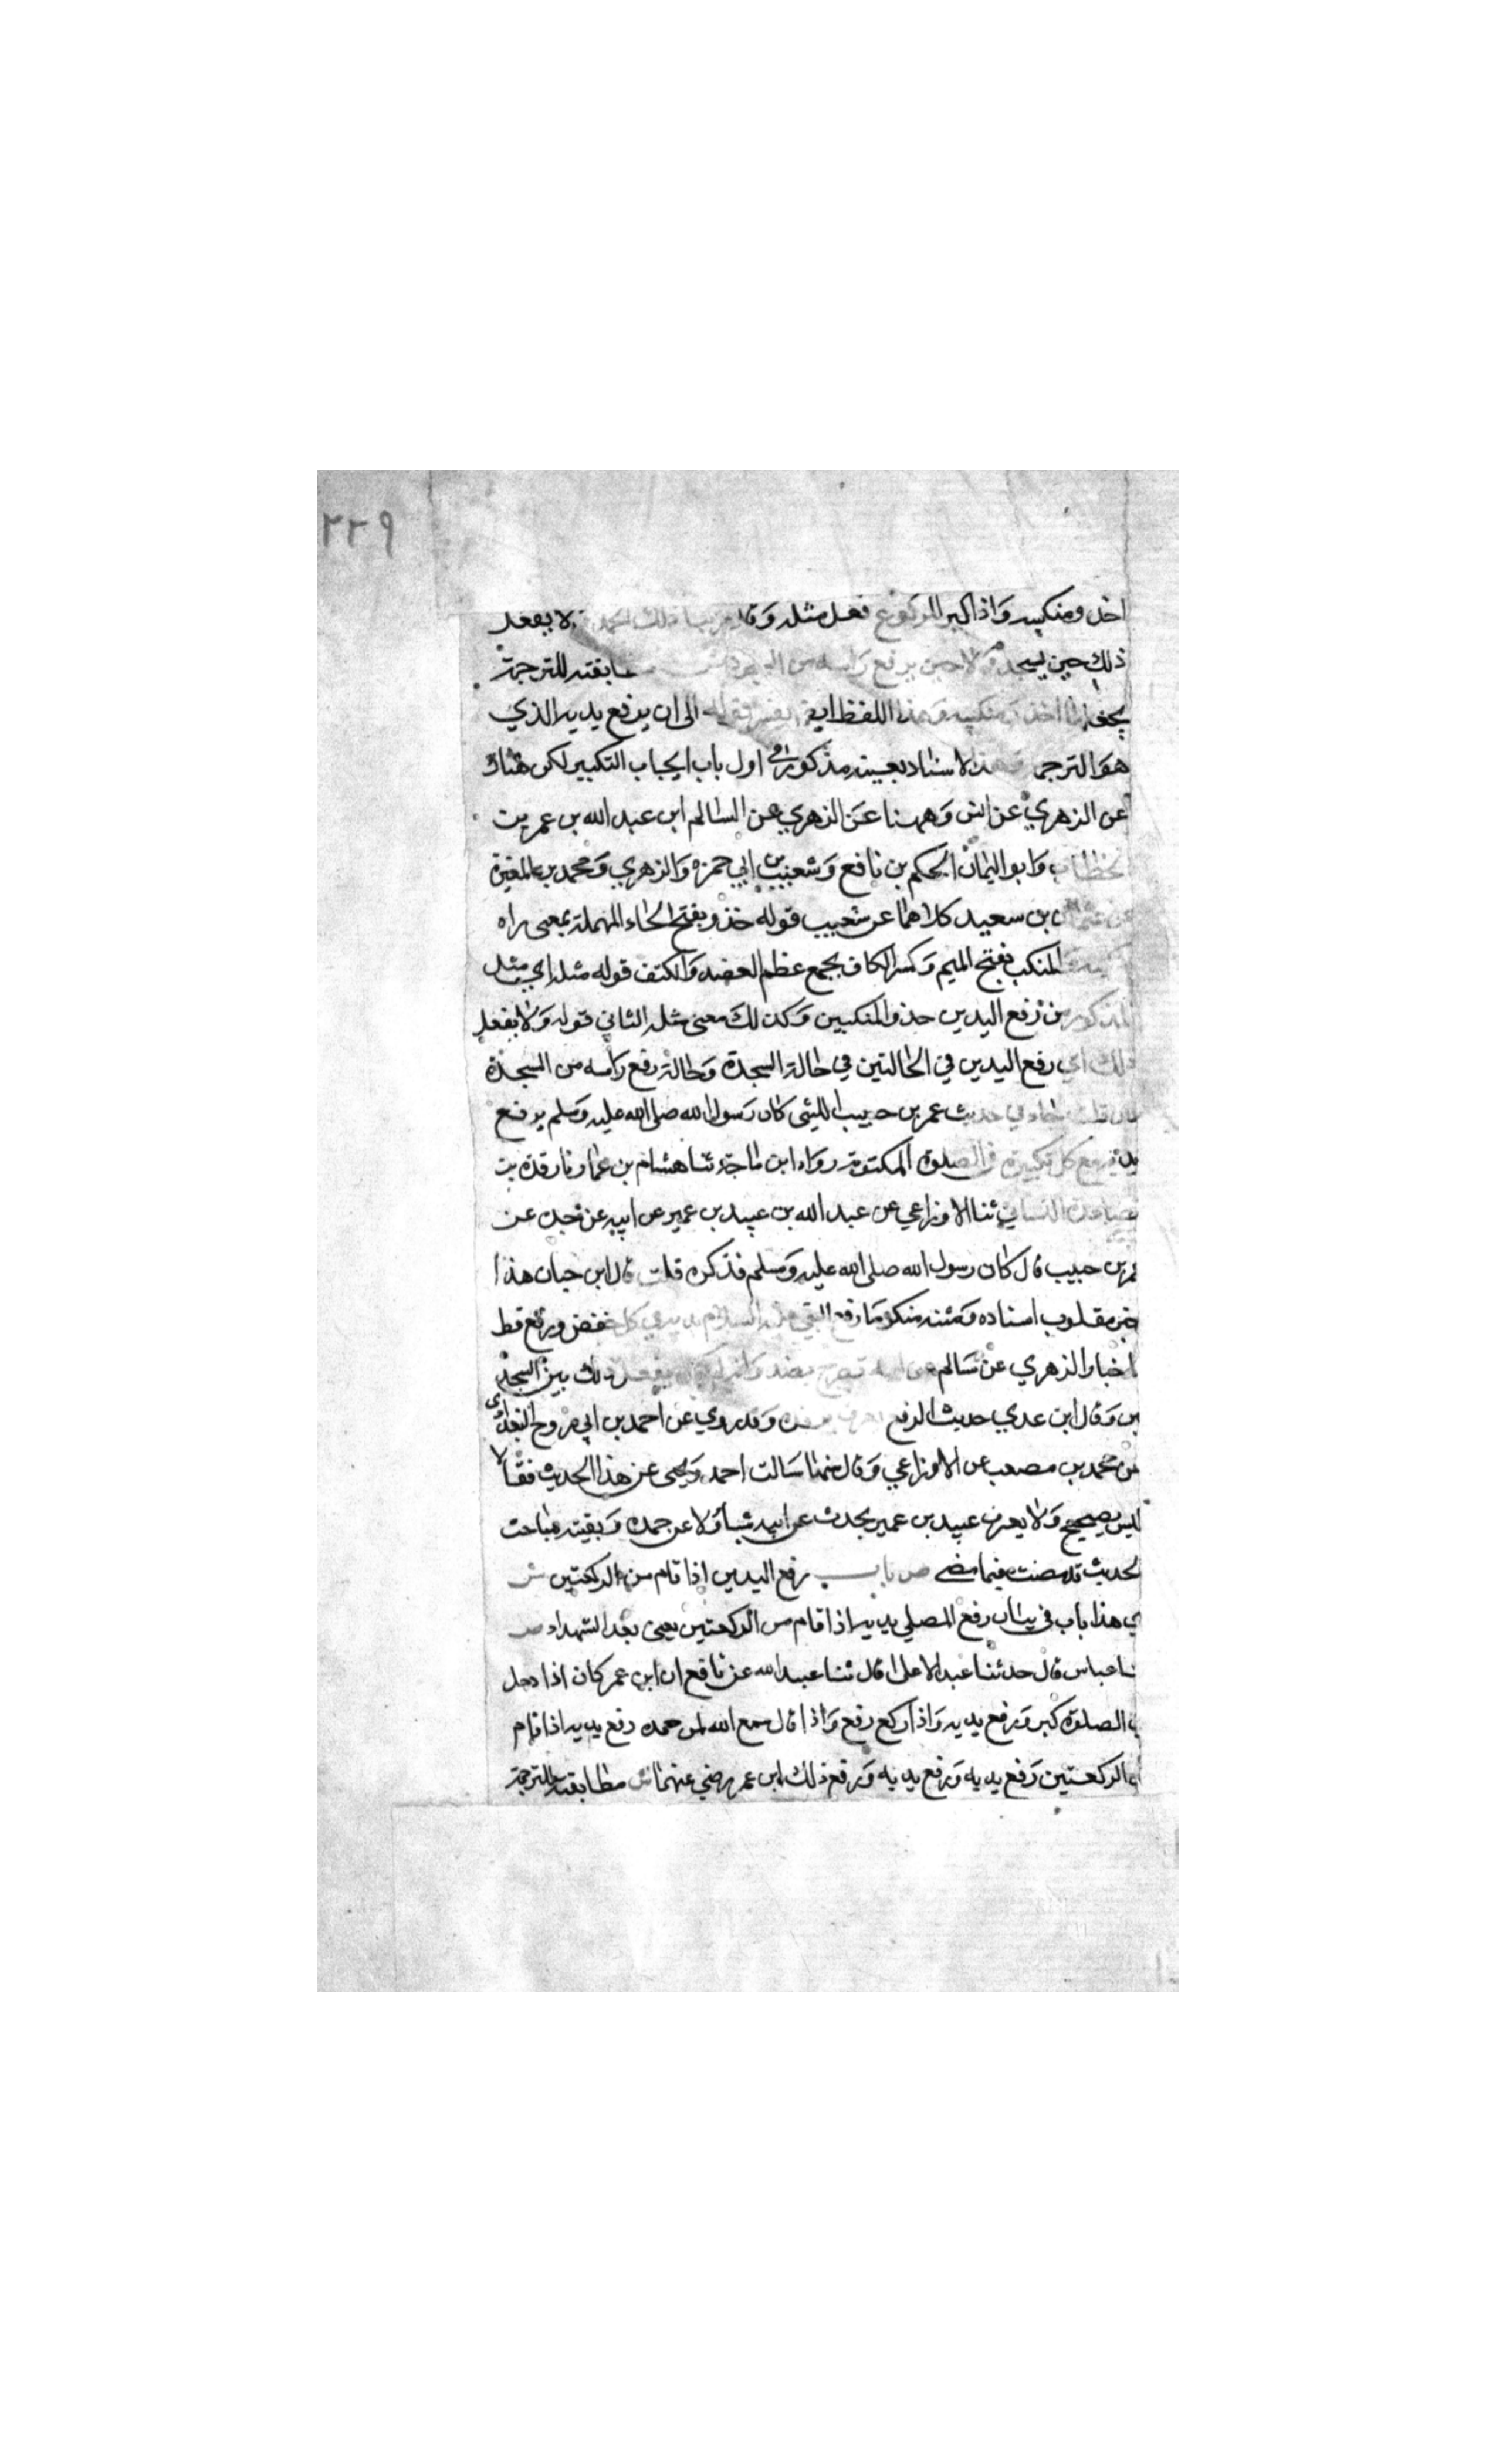 ٢٢٩
اخذ ومنكبيه وَاذا كبر للركوع فعل مثله وَقا ذلك لا يفعل
ذلك حين يسجد وَلا حين يرفع رَاسه من مطابقته للترجمة
بجعلهما اخذ ومنكبيه وَهذا اللفظ ايض يفسر قوله الى اين يرفع يديه الذي
هوَ الترجمة وهذا الاسناد بعينه مذكور في اول باب ايجاب التكبير لكن هناك
عن الزهري عن انس وَههنا عَن الزهري عن السالم ابن عبد الله بن عمر بن
الخطاب وَابو اليمان الحكم بن نافع وَشعيب بن ابي حمزه وَالزهري وَمحمد بن المغيرة
عن عثمان بن سعيد كلاهما عن شعيب قوله حذو بفتح الحاء المهملة بمعنى ازاه
المنكب بفتح الميم وَكسر الكاف مجمع عظم العضد وَالكتف قوله مثله اي مثل
المذكور من رَفع اليدين حذو المنكبين وَكذلكَ معنى مثله الثاني قوله وَلا يفعل
ذلك اي رفع اليدين في الحالتين في حالة السجدة وَحالة رفع رَاسه من السجدة
فان قلت جاء في حديث عمر بن حبيب الليثي كان رَسول الله صلى الله عليه وَسلم يرفع
يديه مع كل تكبيرة في الصلوة المكتوبة رواه ابن ماجة ثنا هشام بن عمار نا رفدة بن
قضاعة الغساني ثنا الاوزاعي عن عبد الله بن عبيد بن عمير عن ابيه عن جده عن
عمر بن حبيب قال كان رسول الله صلى الله عليه وَسلم فذكره قلت قال ابن حبان هذا
خبر مقلوب اسناده وَمتنه منكر مَا رفع النبي عليه السلام يديه في كل خفض ورفع قط
وَاخبار الزهري عن سَالم عن ابيه تصرح بضده وَانه لم يكن يفعل ذلك بين السجد
تين وَقال ابن عدي حديث الرفع يعرف برفدة وَقد روي عن احمد بن ابي روح البغدادى
عن محمد بن مصعب عن الاوزاعي وَقال مهنا سَالت احمد وَيحيى عن هذا الحديث فقالا
ليس بصحيح وَلا يعرف عبيد بن عمير يحدث عن ابيه شيأ وَلا عن جده وَبقية مباحث
الحديث قد مضت فيما مضى ص باب رفع اليدين اذا قام من الركعتين ش
اي هذا باب في بيان رفع المصلي يديه اذا قام من الركعتين يعنى بعد التشهد ص
ثنا عياش قال حدثنا عبد الاعلى قال ثنا عبيد الله عن نافع ان ابن عمر كان اذا دخل
في الصلوة كبر وَرفع يديه وَاذا ركع رفع وَاذا قال سمع الله لمن حمده رفع يديه اذا قام
من الركعتين رَفع يديه وَرفع يديه وَرفع ذلك ابن عمر رضي عنهما ش مطابقته للترجمة